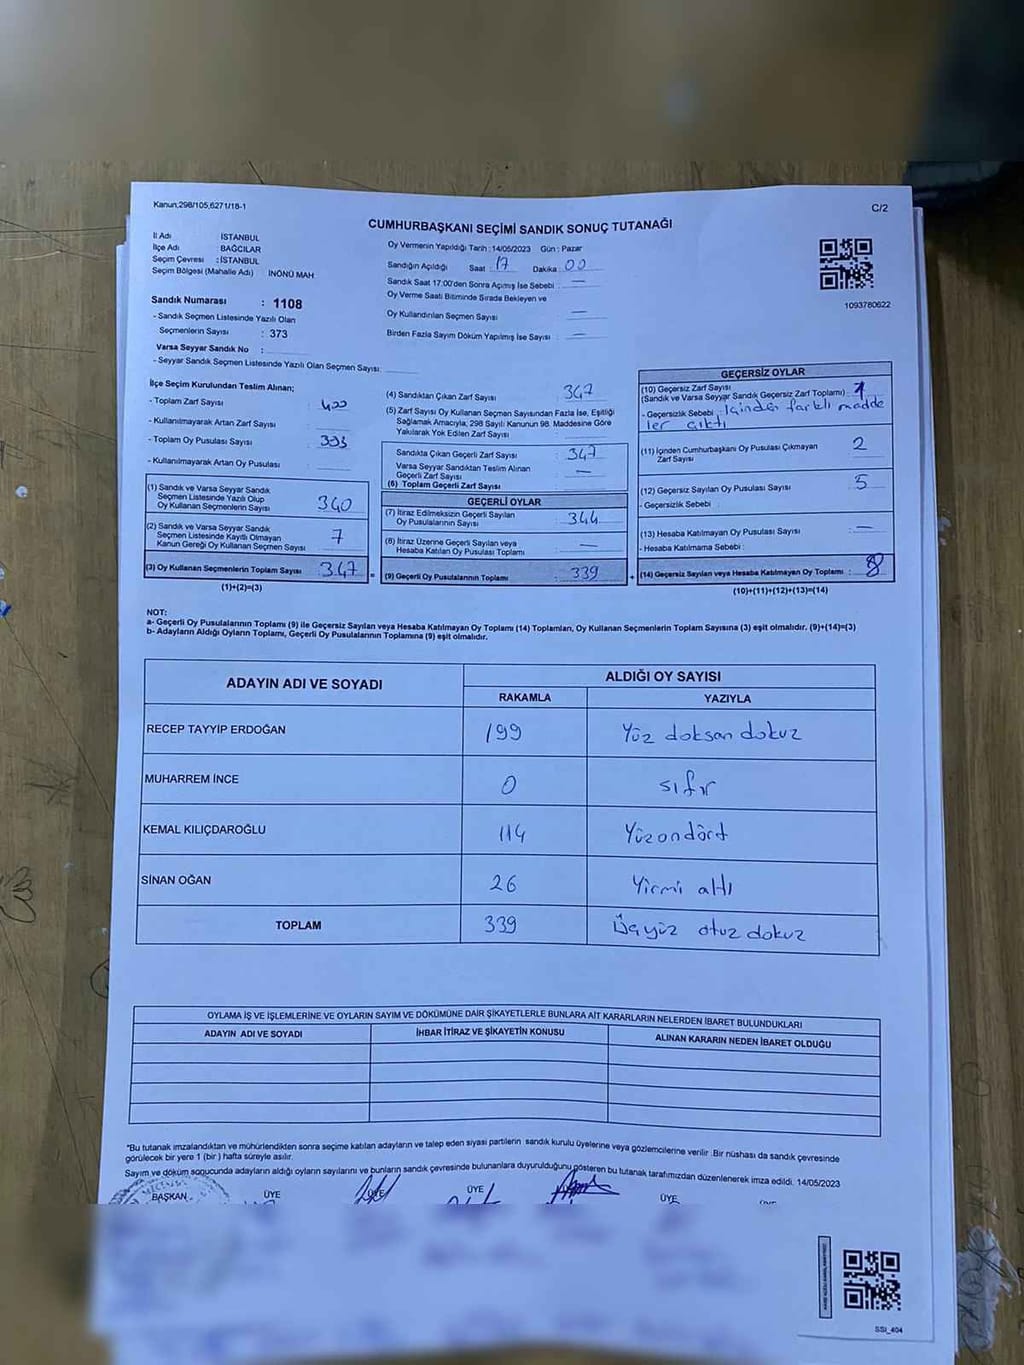 Kanun,298/105,6271/18-1
C/2
CUMHURBAŞKANI SEÇİMİ SANDIK SONUÇ TUTANAĞI
İl Adı İSTANBUL
İlçe Adı BAĞCILAR
Seçim Çevresi : İSTANBUL
Seçim Bölgesi (Mahalle Adı) İNÖNÜ MAH.
Sandık Numarası : 1108
- Sandık Seçmen Listesinde Yazılı Olan
Seçmenlerin Sayısı : 373
Varsa Seyyar Sandık No :
- Seyyar Sandık Seçmen Listesinde Yazılı Olan Seçmen Sayısı:
Oy Vermenin Yapıldığı Tarih : 14/05/2023 Gün : Pazar
Sandığın Açıldığı Saat : 17 Dakika : 00
Sandık Saat 17:00'den Sonra Açımış İse Sebebi : —
Oy Verme Saati Bitiminde Sırada Bekleyen ve
Oy Kullandırılan Seçmen Sayısı : —
Birden Fazla Sayım Döküm Yapılmış İse Sayısı : —
1093780622
İlçe Seçim Kurulundan Teslim Alınan;
- Toplam Zarf Sayısı : 400
- Kullanılmayarak Artan Zarf Sayısı :
- Toplam Oy Pusulası Sayısı
- Kullanılmayarak Artan Oy Pusulası :
(1) Sandık ve Varsa Seyyar Sandık
Seçmen Listesinde Yazılı Olup
Oy Kullanan Seçmenlerin Sayısı 340
(2) Sandık ve Varsa Seyyar Sandık
Seçmen Listesinde Kayıtlı Olmayan
Kanun Gereği Oy Kullanan Seçmen Sayısı 7
(3) Oy Kullanan Seçmenlerin Toplam Sayısı : 347
(1)+(2)=(3)
(4) Sandıktan Çıkan Zarf Sayısı : 347
(5) Zarf Sayısı Oy Kullanan Seçmen Sayısından Fazla İse, Eşitliği
Sağlamak Amacıyla, 298 Sayılı Kanunun 98. Maddesine Göre
Yakılarak Yok Edilen Zarf Sayısı :
Sandıkta Çıkan Geçerli Zarf Sayısı : 347
Varsa Seyyar Sandıktan Teslim Alınan
Geçerli Zarf Sayısı : —
(6) Toplam Geçerli Zarf Sayısı
GEÇERLİ OYLAR
(7) İtiraz Edilmeksizin Geçerli Sayılan
Oy Pusulalarının Sayısı : 344
(8) İtiraz Üzerine Geçerli Sayılan veya
Hesaba Katılan Oy Pusulası Toplamı : —
= (9) Geçerli Oy Pusulalarının Toplamı : 339 +
GEÇERSİZ OYLAR
(10) Geçersiz Zarf Sayısı
(Sandık ve Varsa Seyyar Sandık Geçersiz Zarf Toplamı) : 1
- Geçersizlik Sebebi : İçinden farklı madde
ler çıktı
(11) İçinden Cumhurbaşkanı Oy Pusulası Çıkmayan
Zarf Sayısı 2
(12) Geçersiz Sayılan Oy Pusulası Sayısı : 5
- Geçersizlik Sebebi :
(13) Hesaba Katılmayan Oy Pusulası Sayısı : —
- Hesaba Katılmama Sebebi :
(14) Geçersiz Sayılan veya Hesaba Katılmayan Oy Toplamı : 8
(10)+(11)+(12)+(13)=(14)
NOT:
a- Geçerli Oy Pusulalarının Toplamı (9) ile Geçersiz Sayılan veya Hesaba Katılmayan Oy Toplamı (14) Toplamları, Oy Kullanan Seçmenlerin Toplam Sayısına (3) eşit olmalıdır. (9)+(14)=(3)
b- Adayların Aldığı Oyların Toplamı, Geçerli Oy Pusulalarının Toplamına (9) eşit olmalıdır.
ADAYIN ADI VE SOYADI ALDIĞI OY SAYISI
RAKAMLA YAZIYLA
RECEP TAYYİP ERDOĞAN 199 Yüz doksan dokuz
MUHARREM İNCE 0 sıfır
KEMAL KILIÇDAROĞLU 114 Yüzondört
SİNAN OĞAN 26 Yirmi altı
TOPLAM 339 Üçyüz otuz dokuz
OYLAMA İŞ VE İŞLEMLERİNE VE OYLARIN SAYIM VE DÖKÜMÜNE DAİR ŞİKAYETLERLE BUNLARA AİT KARARLARIN NELERDEN İBARET BULUNDUKLARI
ADAYIN ADI VE SOYADI İHBAR İTİRAZ VE ŞİKAYETİN KONUSU ALINAN KARARIN NEDEN İBARET OLDUĞU
*Bu tutanak imzalandıktan ve mühürlendikten sonra seçime katılan adayların ve talep eden siyasi partilerin sandık kurulu üyelerine veya gözlemcilerine verilir. Bir nüshası da sandık çevresinde
görülecek bir yere 1 (bir ) hafta süreyle asılır.
Sayım ve döküm sonucunda adayların aldığı oyların sayılarını ve bunların sandık çevresinde bulunanlara duyurulduğunu gösteren bu tutanak tarafımızdan düzenlenerek imza edildi. 14/05/2023
BAŞKAN ÜYE ÜYE ÜYE ÜYE
SSI_404